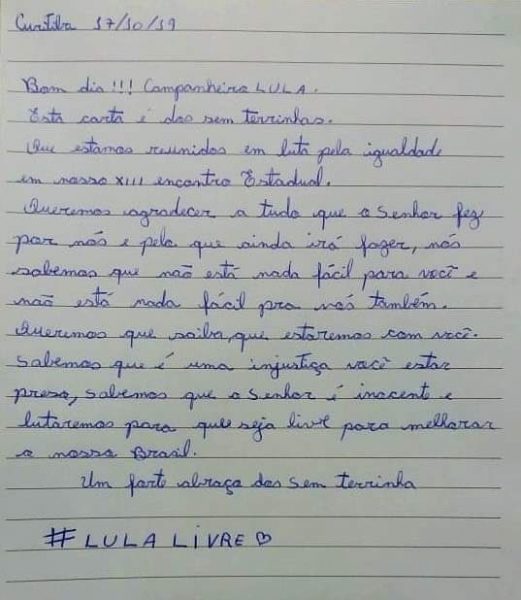 Curitiba 17/10/19
Bom dia!!! Companheiro LULA.
Está carta é dos sem terrinhas.
Que estamos reunidos em luta pela igualdade
em nosso XIII encontro Estadual.
Queremos agradecer a tudo que o Senhor fez
por nós e pelo que ainda irá fazer, nós
sabemos que não está nada fácil para você e
não está nada fácil pra nós também.
Queremos que saiba, que estaremos com você.
Sabemos que é uma injustiça você estar
preso, sabemos que o Senhor é inocente e
lutaremos para que seja livre para melhorar
o nosso Brasil.
Um forte abraço dos Sem terrinha
# LULA LIVRE ♡